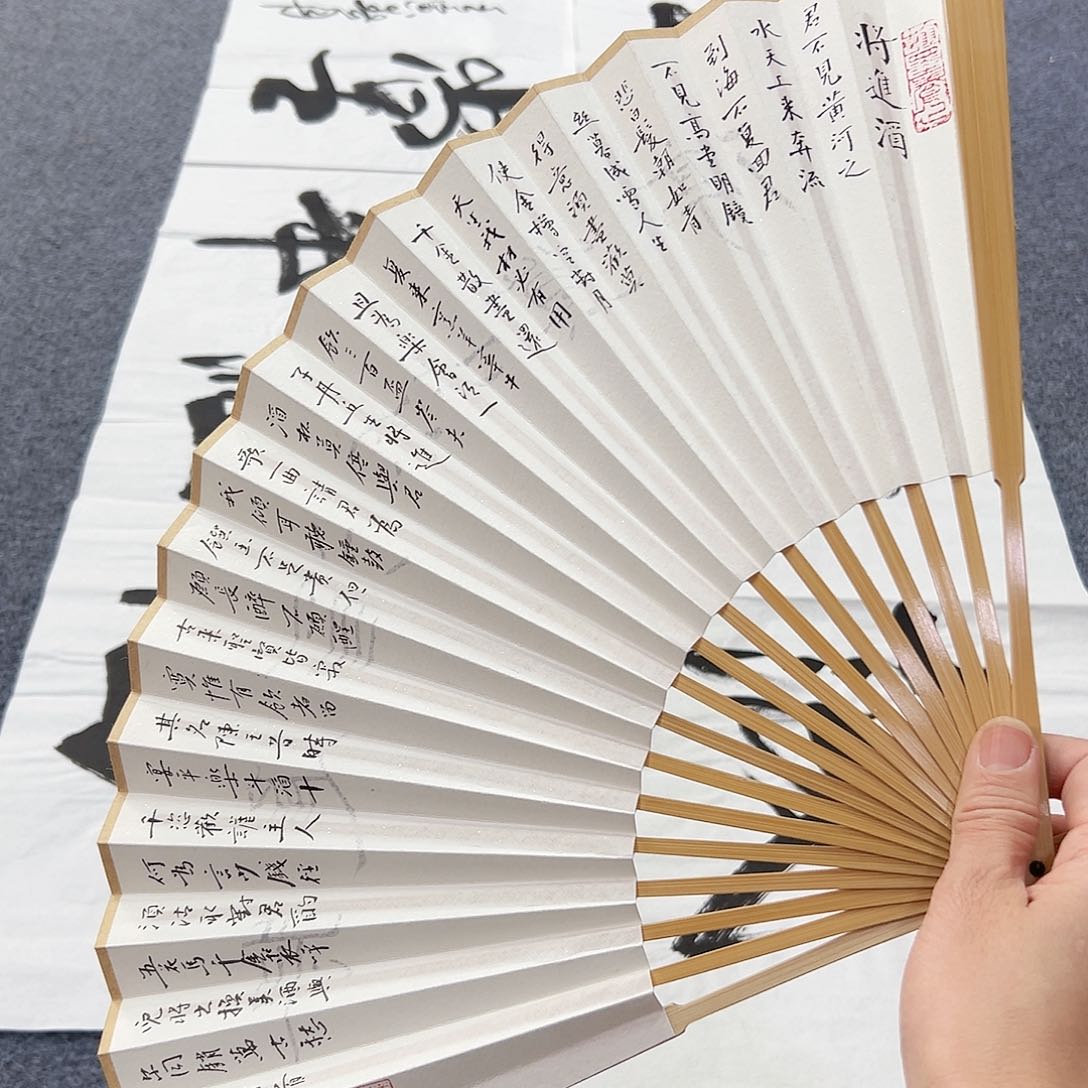 將進酒
君不見黃河之
水天上来奔流
到海不复回君
不見高堂明鏡
悲白髮朝如青
丝暮成雪人生
得意須盡歡莫
使金樽空對月
天生我材必有用
千金散盡還
复来烹羊宰牛
且為樂會須一
飲三百盃岑夫
子丹丘生將進
酒杯莫停與君
歌一曲請君為
我傾耳聽鐘鼓
饌玉不足貴但
願長醉不願醒
古来聖賢皆寂
寞惟有飲者留
其名陳王昔時
宴平樂斗酒十
千恣歡謔主人
何為言少錢徑
須沽取對君酌
五花馬千金裘呼
兒將出換美酒與
尔同銷萬古愁